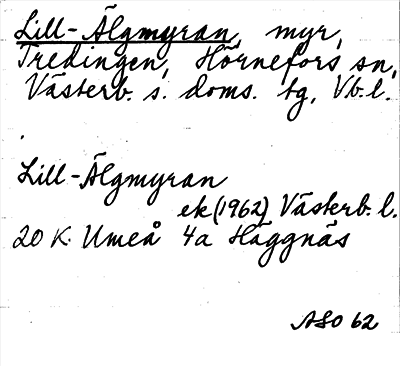 Lill-Älgmyran, myr,
Tredingen, Hörnefors sn,
Västerb. s. doms. tg, Vb. l.
Lill-Älgmyran
ek (1962) Västerb. l.
20 K. Umeå 4a Häggnäs
ASO 62